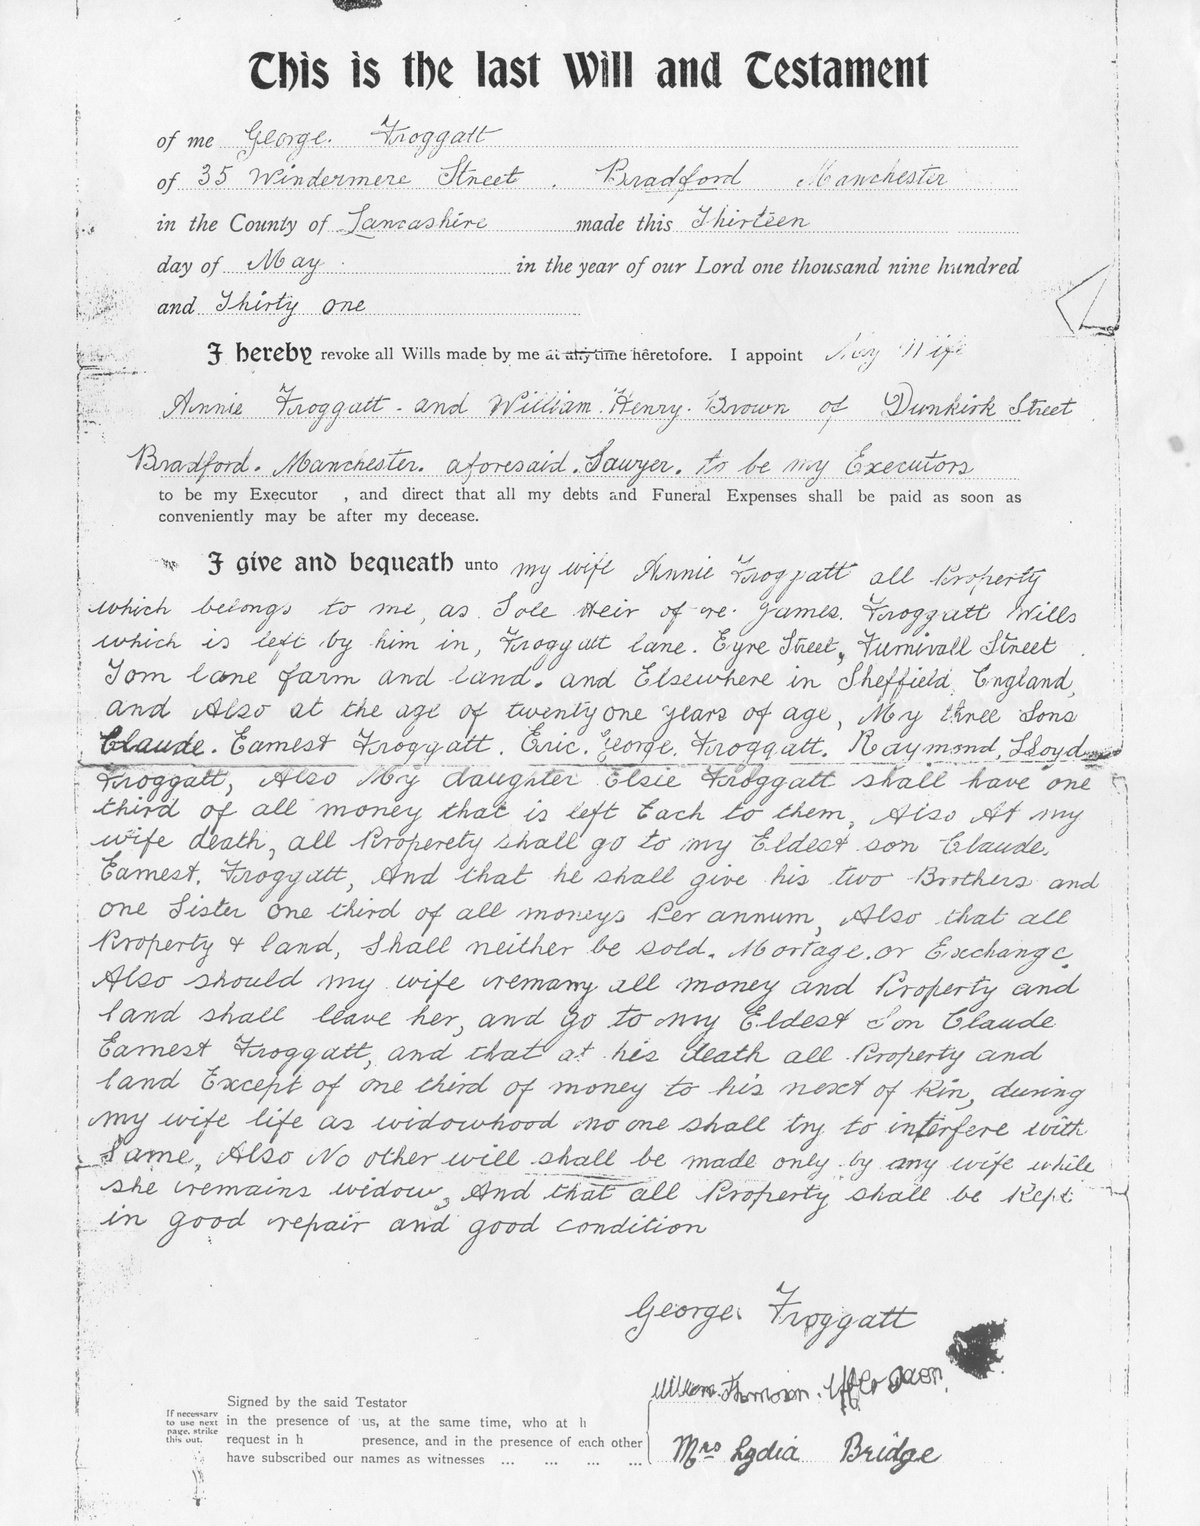 This is the last Will and Testament
of me George. Froggatt
of 35 Windermere Street. Bradford Manchester
in the County of Lancashire made this Thirteen
day of May in the year of our Lord one thousand nine hundred
and Thirty one
I hereby revoke all Wills made by me at any time heretofore. I appoint My Wife
Annie Froggatt. and William. Henry. Brown of Dunkirk Street
Bradford. Manchester. aforesaid. Sawyer. to be my Executors
to be my Executor , and direct that all my debts and Funeral Expenses shall be paid as soon as
conveniently may be after my decease.
I give and bequeath unto my wife Annie Froggatt all Property
which belongs to me, as Sole Heir of re. James. Froggatt Wills
which is left by him in, Froggatt lane. Eyre Street, Furnivall Street
Tom lane farm and land. and Elsewhere in Sheffield, England,
and Also at the age of twenty one years of age, My three Sons
Claude. Earnest Froggatt. Eric. George. Froggatt. Raymond, Lloyd
Froggatt, Also My daughter Elsie Froggatt shall have one
third of all money that is left Each to them, Also At my
wife death, all Properety shall go to my Eldest son Claude.
Earnest. Froggatt, And that he shall give his two Brothers and
one Sister one third of all moneys Per annum, Also that all
Property & land, Shall neither be sold. Mortage. or Exchange.
Also should my wife remarry all money and Property and
land shall leave her, and go to my Eldest Son Claude
Earnest Froggatt, and that at his death all Property and
land Except of one third of money to his next of Kin, during
my wife life as widowhood no one shall try to interfere with
Same, Also No other will shall be made only by any wife while
she remains widow, And that all Property shall be Kept
in good repair and good condition
George. Froggatt
Signed by the said Testator
in the presence of us, at the same time, who at h
request in h presence, and in the presence of each other
have subscribed our names as witnesses ... ... ... ...
If necessary
to use next
page, strike
this out.
Mrs Lydia Bridge